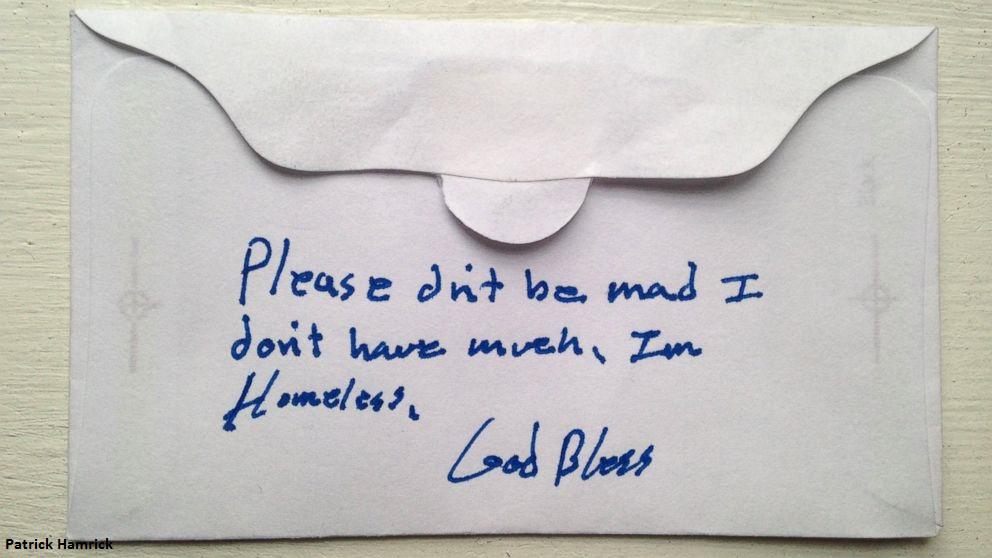 Please don't be mad I
don't have much. Im
Homeless.
God Bless
Patrick Hamrick